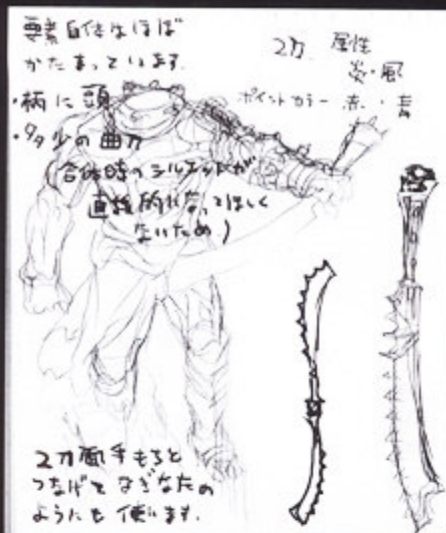 要素自体はほぼ
かたまっています。
・柄に頭
・多少の曲刀
(合体時のシルエットが
直線的になってほしく
ないため)
2刀 属性
炎・風
ポイントカラー 赤・青
2刀風手もちと
つなげてなぎなたの
ようにも使います.